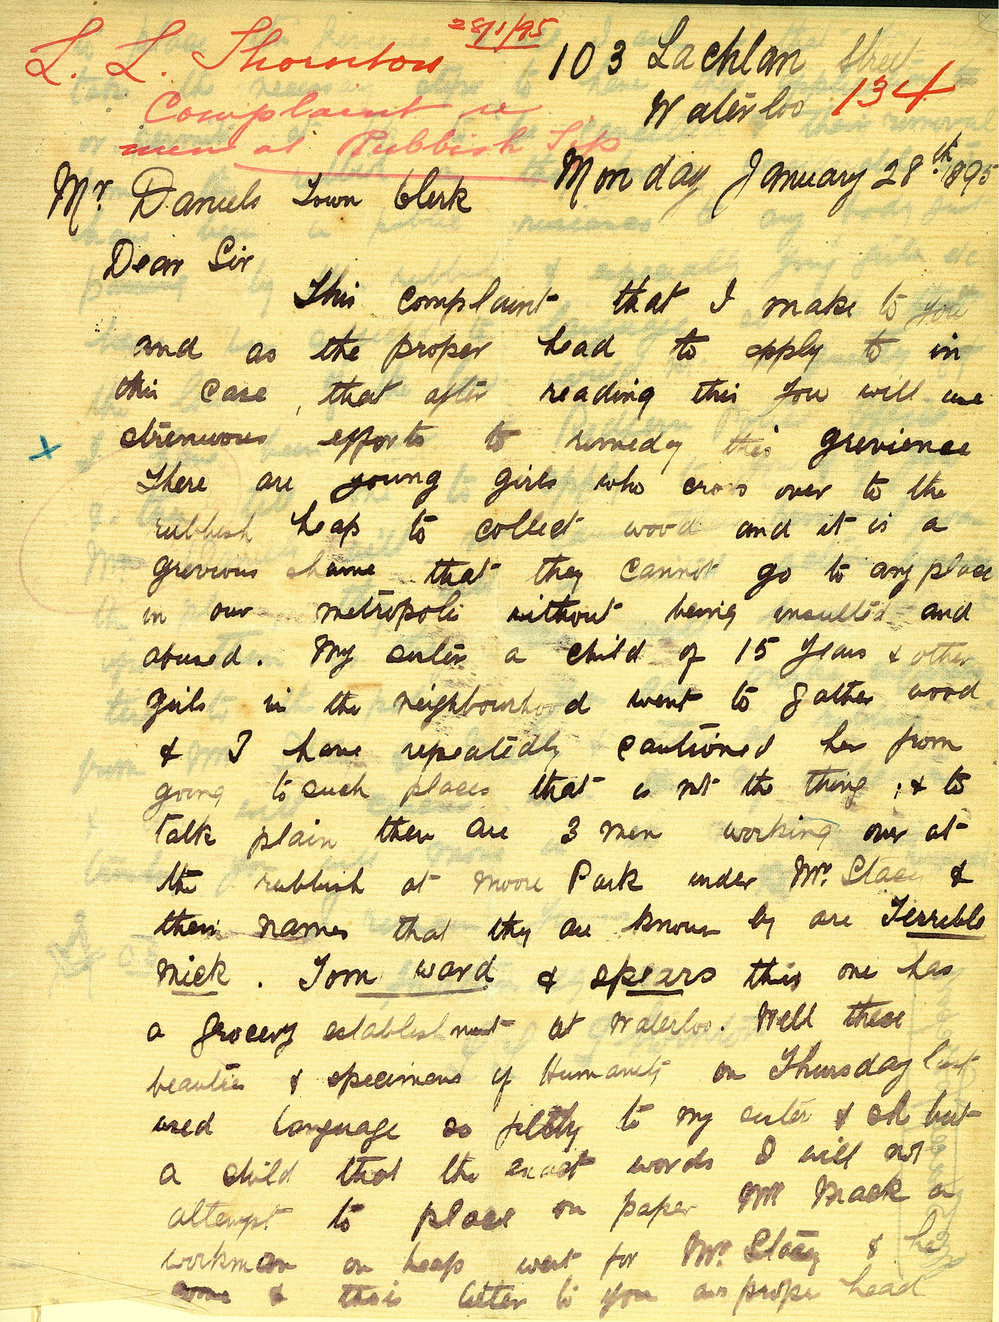 28/1/95
L. L. Thornton
Complaint re
men at Rubbish Tip
134
103 Lachlan Street
Waterloo
Monday January 28th 1895
Mr Daniels Town Clerk
Dear Sir
This complaint that I make to you
and as the proper head to apply to in
this case, that after reading this you will use
strenuous efforts to remedy this grevience
There are young girls who cross over to the
rubbish heap to collect wood and it is a
grevious shame that they cannot go to any place
in our metropoli without being insulted and
abused. My sister a child of 15 years & other
girls in the neighbourhood went to gather wood
& I have repeatedly cautioned her from
going to such places that is not the thing; & to
talk plain there are 3 men working over at
the rubbish at Moore Park under Mr. Stacey &
their names that they are known by are Terrible
Mick. Tom Ward & Spears this one has
a grocery establishment at Waterloo. Well these
beauties & specimens of Humanity on Thursday last
used language so filthy to my sister & oh but
a child that the exact words I will not
attempt to place on paper Mack a
workman on heaps went for Mr. Stacey & he
& this letter to you as proper head